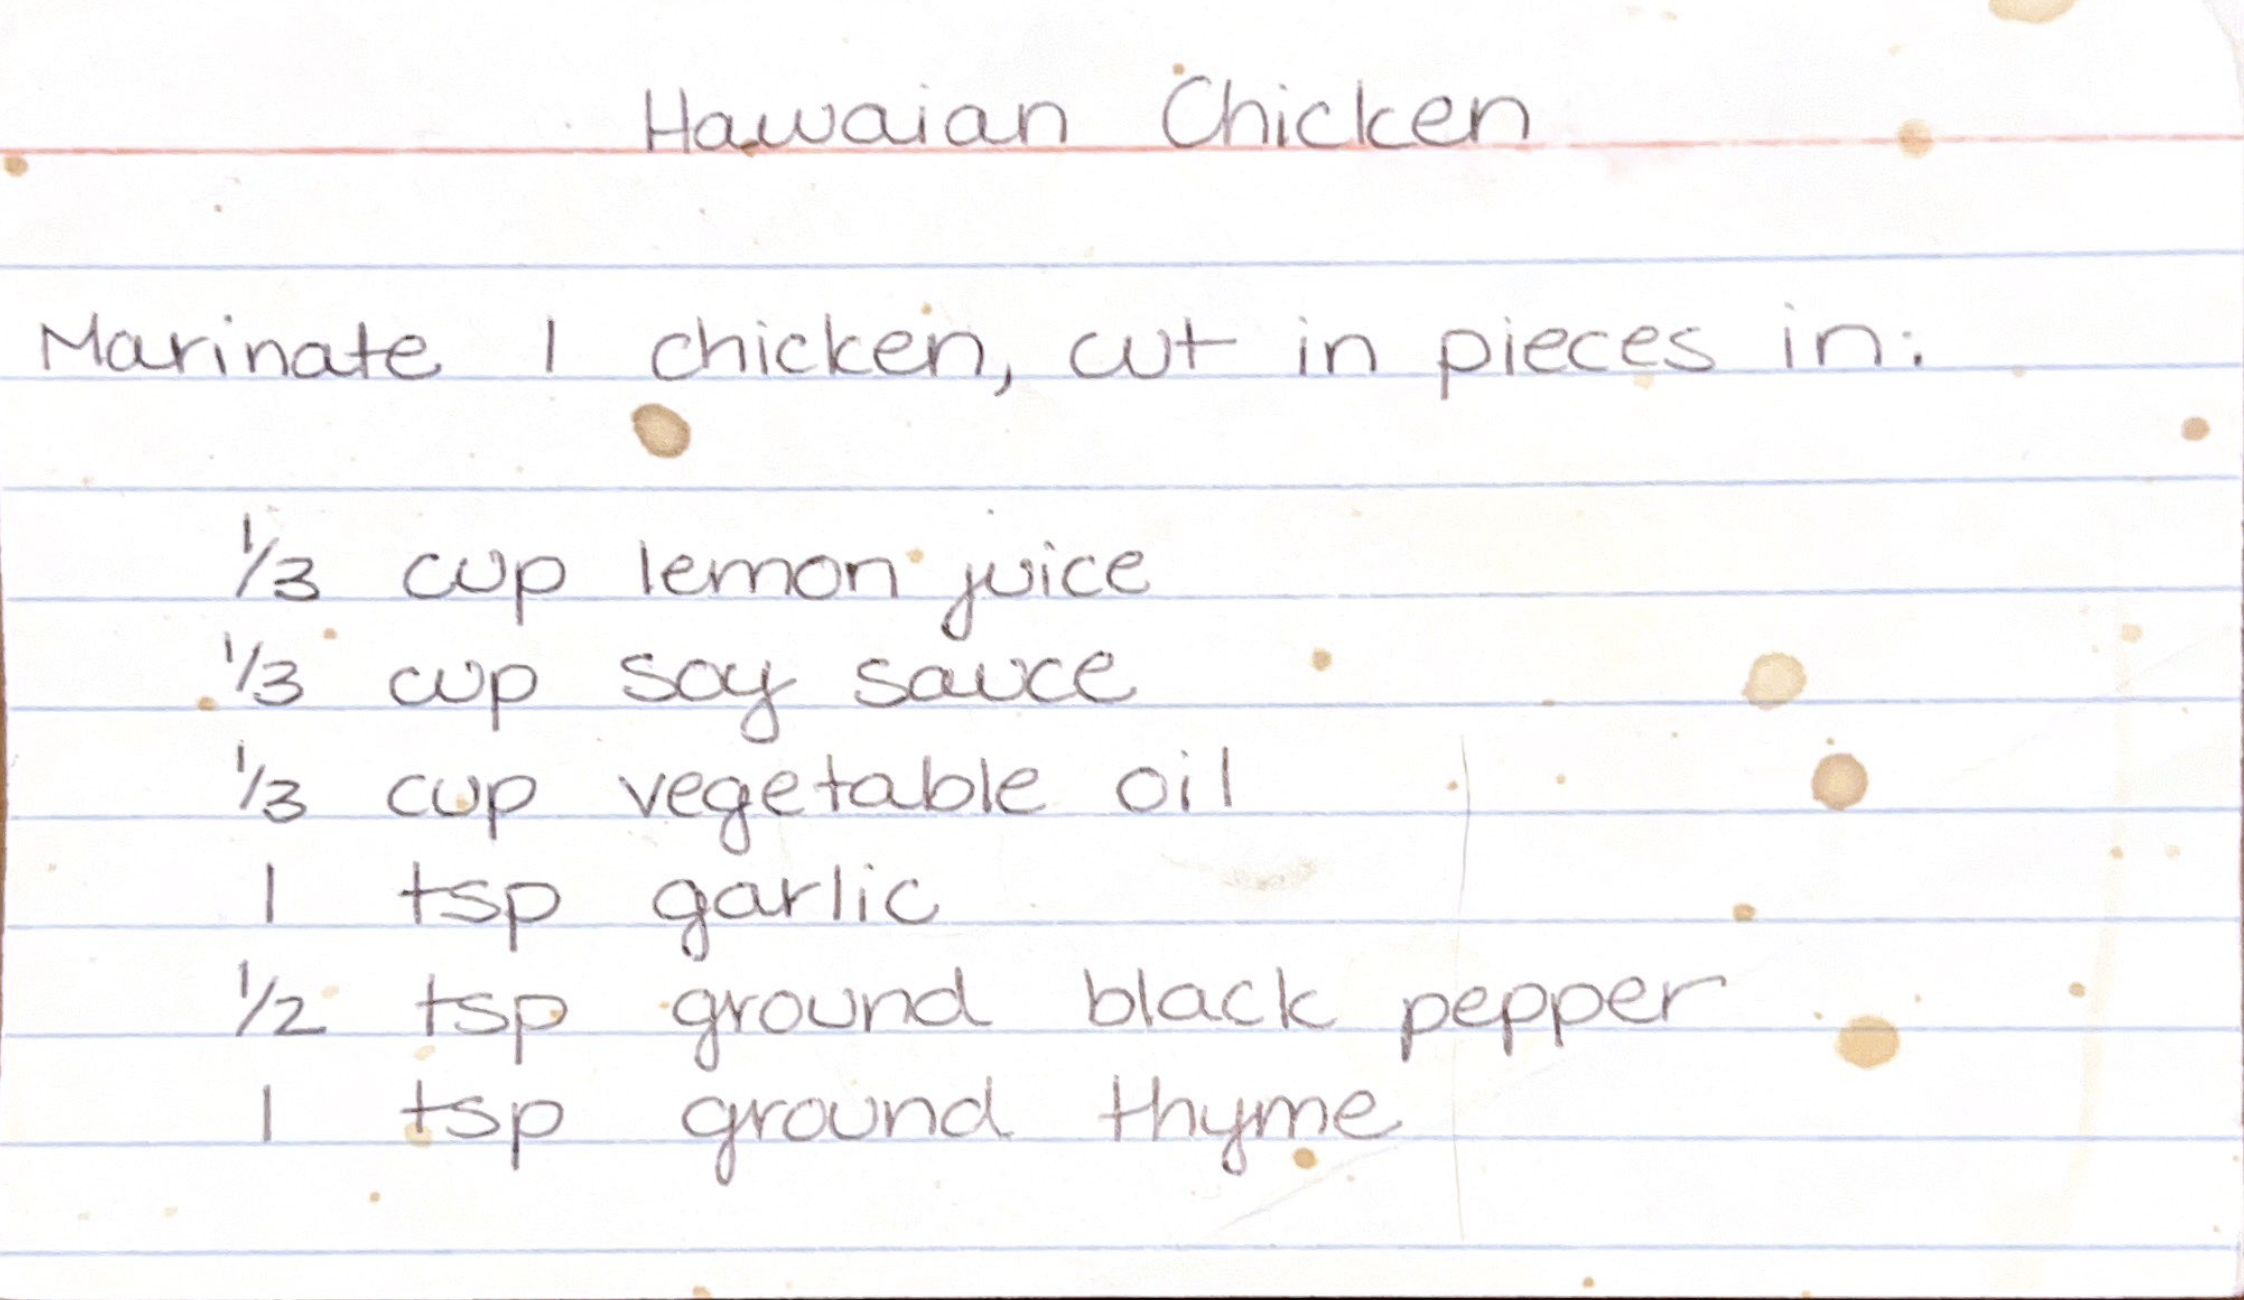 Hawaian Chicken
Marinate 1 chicken, cut in pieces in:
1/3 cup lemon juice
1/3 cup soy sauce
1/3 cup vegetable oil
1 tsp garlic
1/2 tsp ground black pepper
1 tsp ground thyme